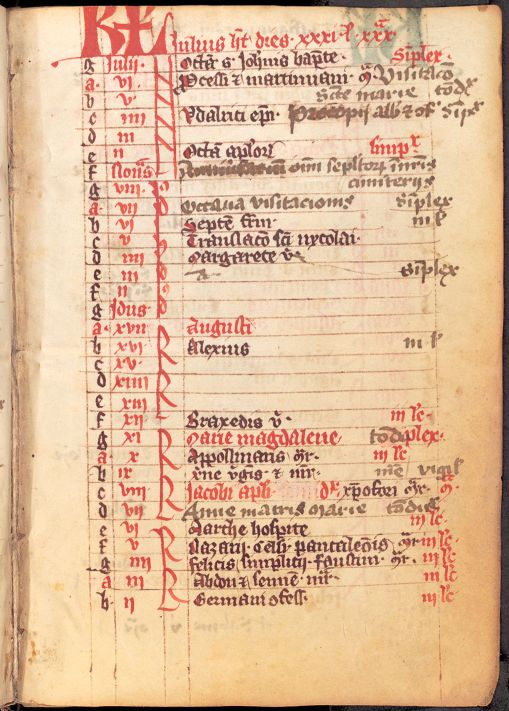 KL Iulius ht dies xxxi l xxx
g Iulii Octa s Johis bapte Siplex
a vi Pcessi & martiniani mr Visitaco
b v Scte marie todx
c iiii Vdalrici epi procopij
d iii
e ii Octa aplorum simpx
f Nonas oim sepltor
g viii cimiterijs
a vii Occaua visitacionis siplex
b vi Septe frm iii l
c v Translaco sci nycolai
d iiii Margarete v
e iii siplex
f ii
g Idus
a xvii Augusti
b xvi Alexius iii l
c xv
d xiiii
e xiii
f xii Braxedis v iii lc
g xi Marie magdalene todplex
a x Appollinaris mr iii lc
b ix xne vgis & mr vigil
c viii Jacobi apli xpofori mr
d vii Anne matris Marie todx
e vi Marthe hospite iii lc
f v Nazarii Celsi pantaleonis mr iii lc
g iiii felicis simplicij faustini mr iii lc
a iii Abdon & senne mr iii lc
b ii Germani cfess iii lc